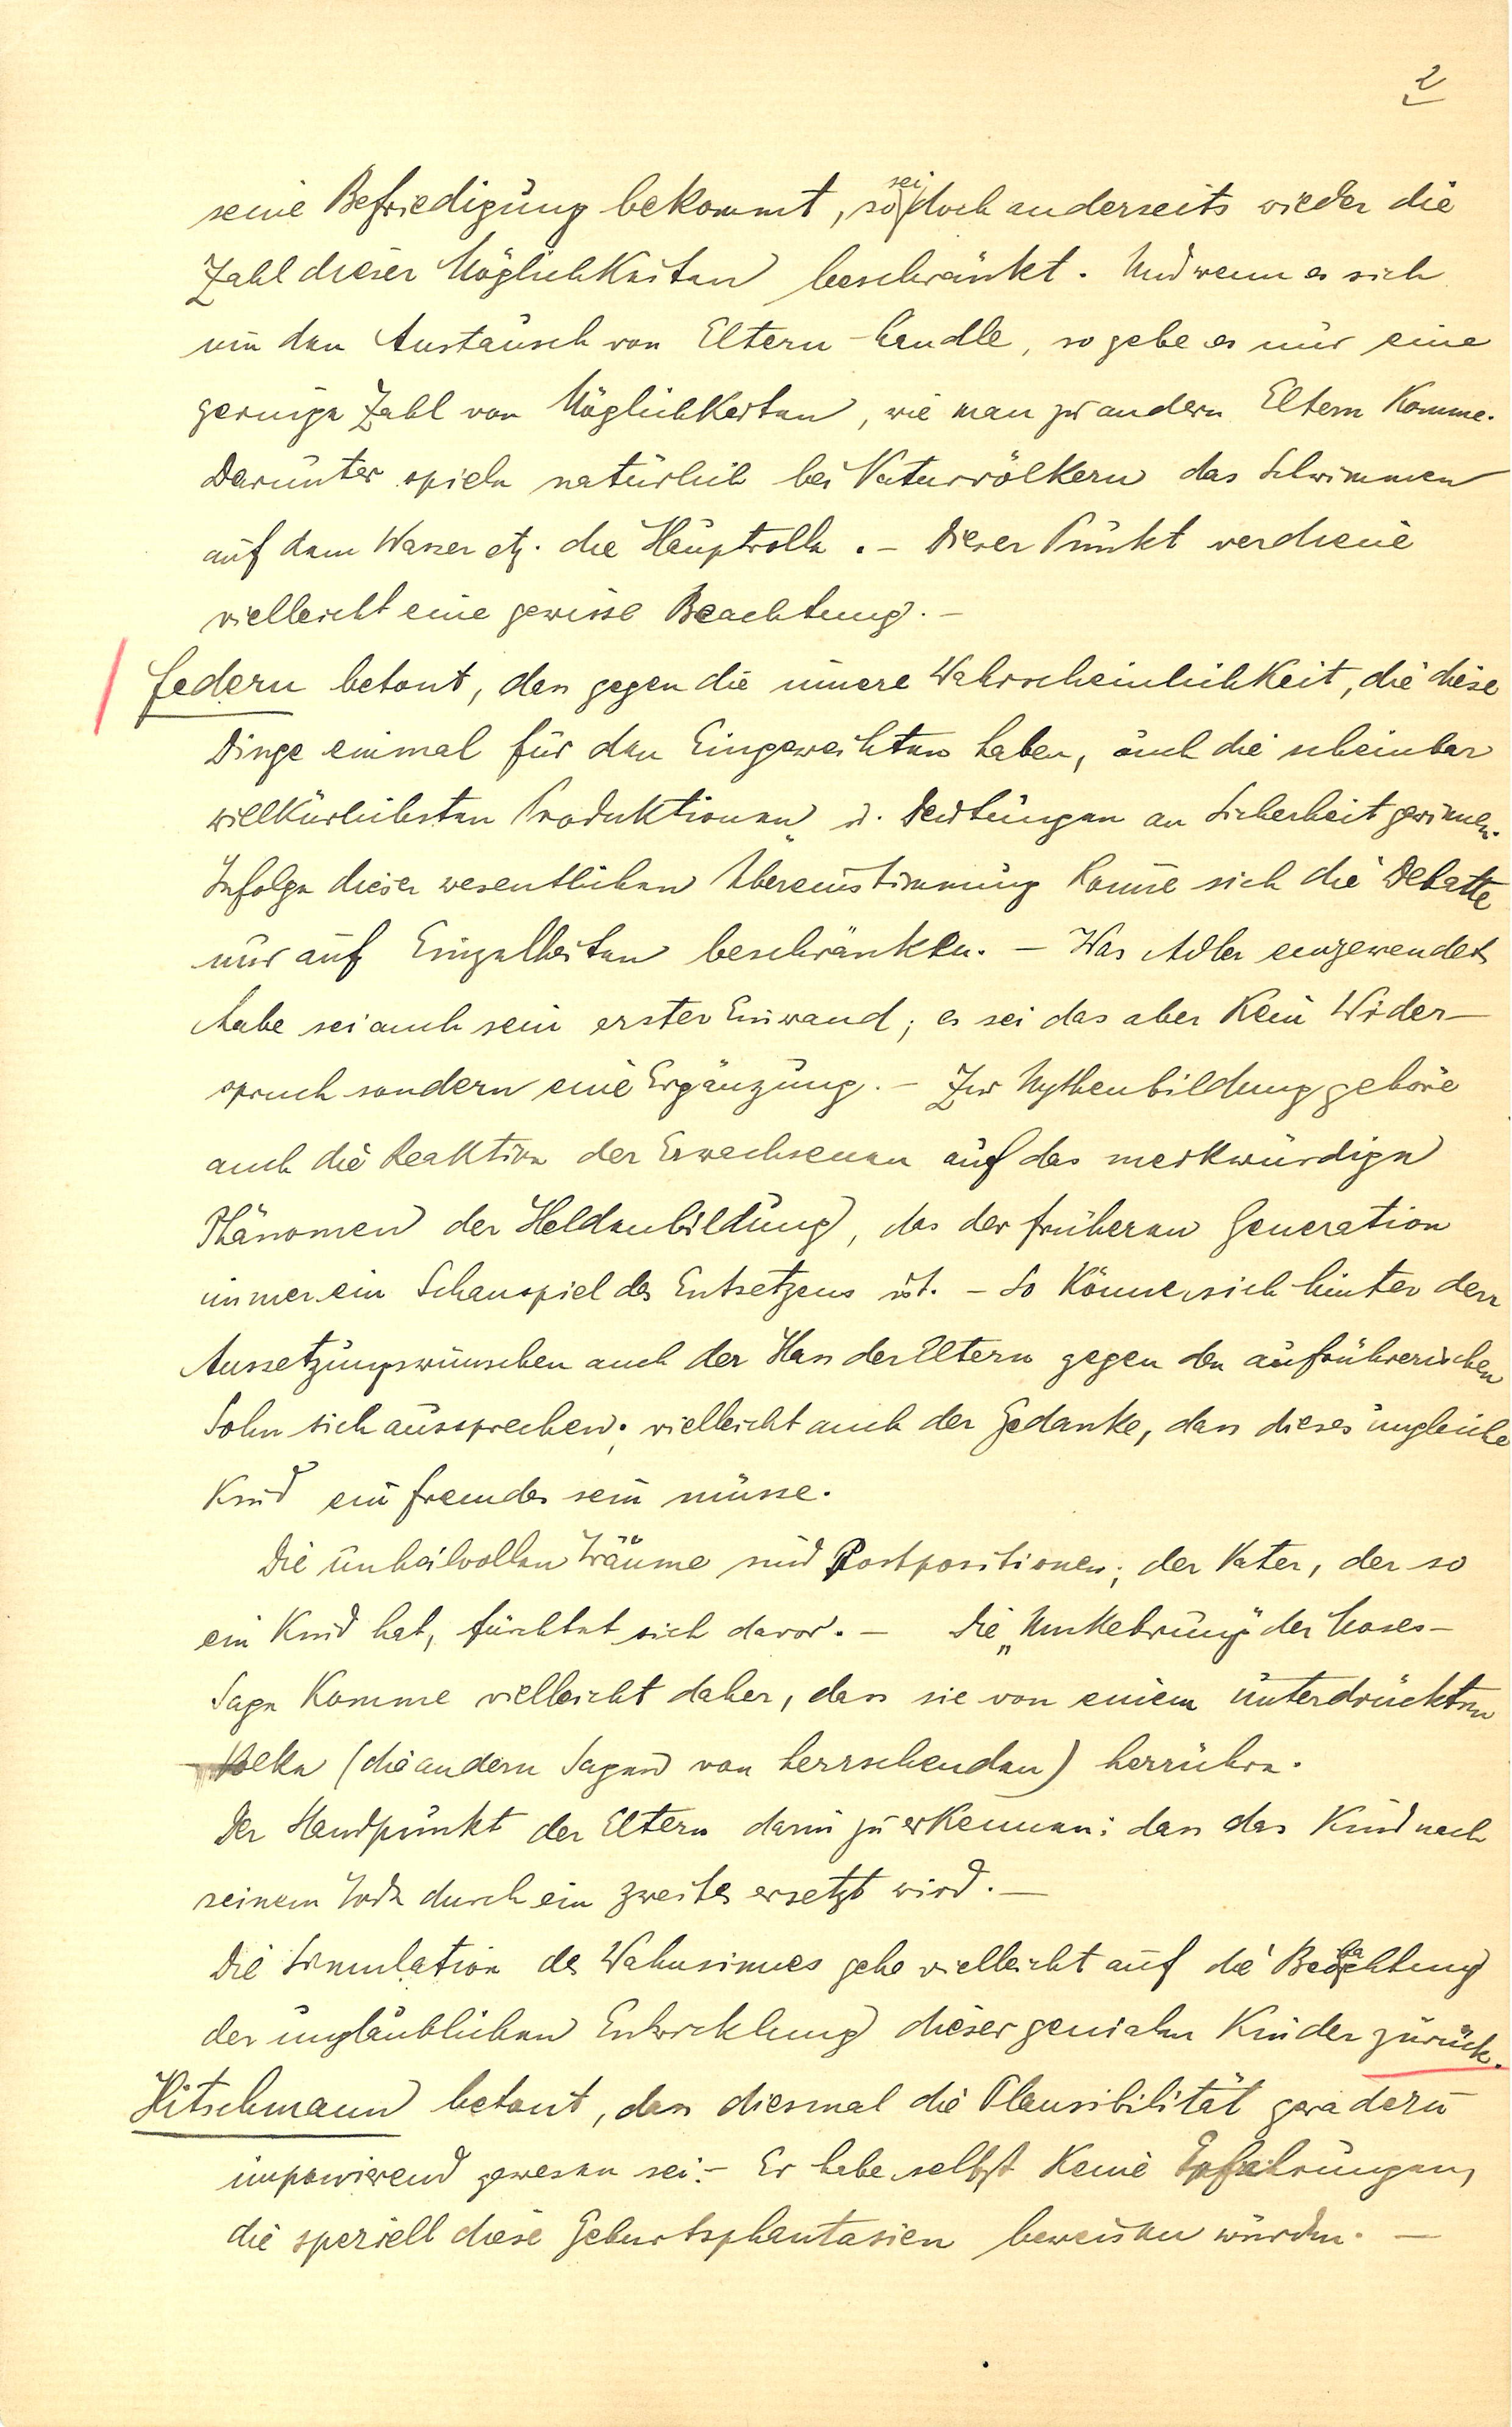 2
seine Befriedigung bekommt, so sei doch anderseits wieder die
Zahl dieser Möglichkeiten beschränkt. Und wenn es sich
um den Austausch von Eltern handle, so gebe es nur eine
geringe Zahl von Möglichkeiten, wie man zu andern Eltern komme.
Darunter spiele natürlich bei Naturvölkern das Schwimmen
auf dem Wasser etz. die Hauptrolle. – Dieser Punkt verdiene
vielleicht eine gewisse Beachtung. –
Federn betont, dass gegen die innere Wahrscheinlichkeit, die diese
Dinge einmal für den Eingeweihten haben, auch die scheinbar
willkürlichsten Produktionen u. Deutungen an Sicherheit gewinnen.
Infolge dieser wesentlichen Übereinstimmung könne sich die Debatte
nur auf Einzelheiten beschränken. – Was Adler eingewendet
habe sei auch sein erster Einwand; es sei das aber kein Wider-
spruch sondern eine Ergänzung. – Zur Mythenbildung gehöre
auch die Reaktion der Erwachsenen auf das merkwürdige
Phänomen der Heldenbildung, das der früheren Generation
immer ein Schauspiel des Entsetzens ist. – So könne sich hinter den
Aussetzungswünschen auch der Hass der Eltern gegen den aufrührerischen
Sohn sich aussprechen; vielleicht auch der Gedanke, dass dieses ungleiche
Kind ein fremdes sein müsse.
Die unheilvollen Träume sind Postpositionen; der Vater, der so
ein Kind hat, fürchtet sich davor. – Die „Umkehrung" der Moses-
Sage komme vielleicht daher, dass sie von einem unterdrückten
Volke (die andern Sagen von herrschenden) herrühre.
Der Standpunkt der Eltern darin zu erkennen: dass das Kind nach
seinem Tode durch ein zweites ersetzt wird. –
Die Simulation des Wahnsinnes gehe vielleicht auf die Beobachtung
der unglaublichen Entwicklung dieser genialen Kinder zurück.
Hitschmann betont, dass diesmal die Plausibilität geradezu
imponierend gewesen sei. – Er habe selbst keine Erfahrungen,
die speziell diese Geburtsphantasien beweisen würden. –